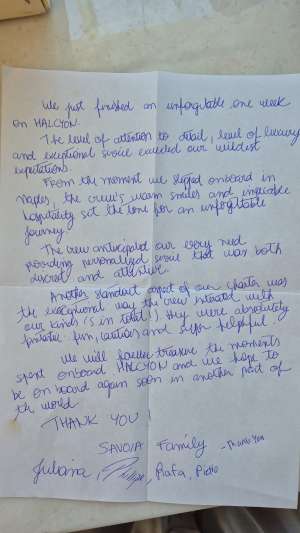 We just finished an unforgutable one week
on HALCYON.
The level of attention to detail, level of luxury
and exceptional service exceeded our wildest
expectations.
From the moment we stepped onboard in
Naples, the crew's warm smiles and
hospitality set the tone for an unforgettable
journey.
The crew anticipated our every need
providing personalized service that was both
discreet and attentive.
Another standout aspect of our charter was
the exceptional way the crew interacted with
our kids (5 in total!) they were absolutely
fantastic. fun, and super helpful
We will forever treasure the moments
spent onboard HALCYON and we hope to
be on board again soon in another part of
the world.
THANK YOU!
SAVOIA Family - Thank You
Juliana, Rafa, Pietro